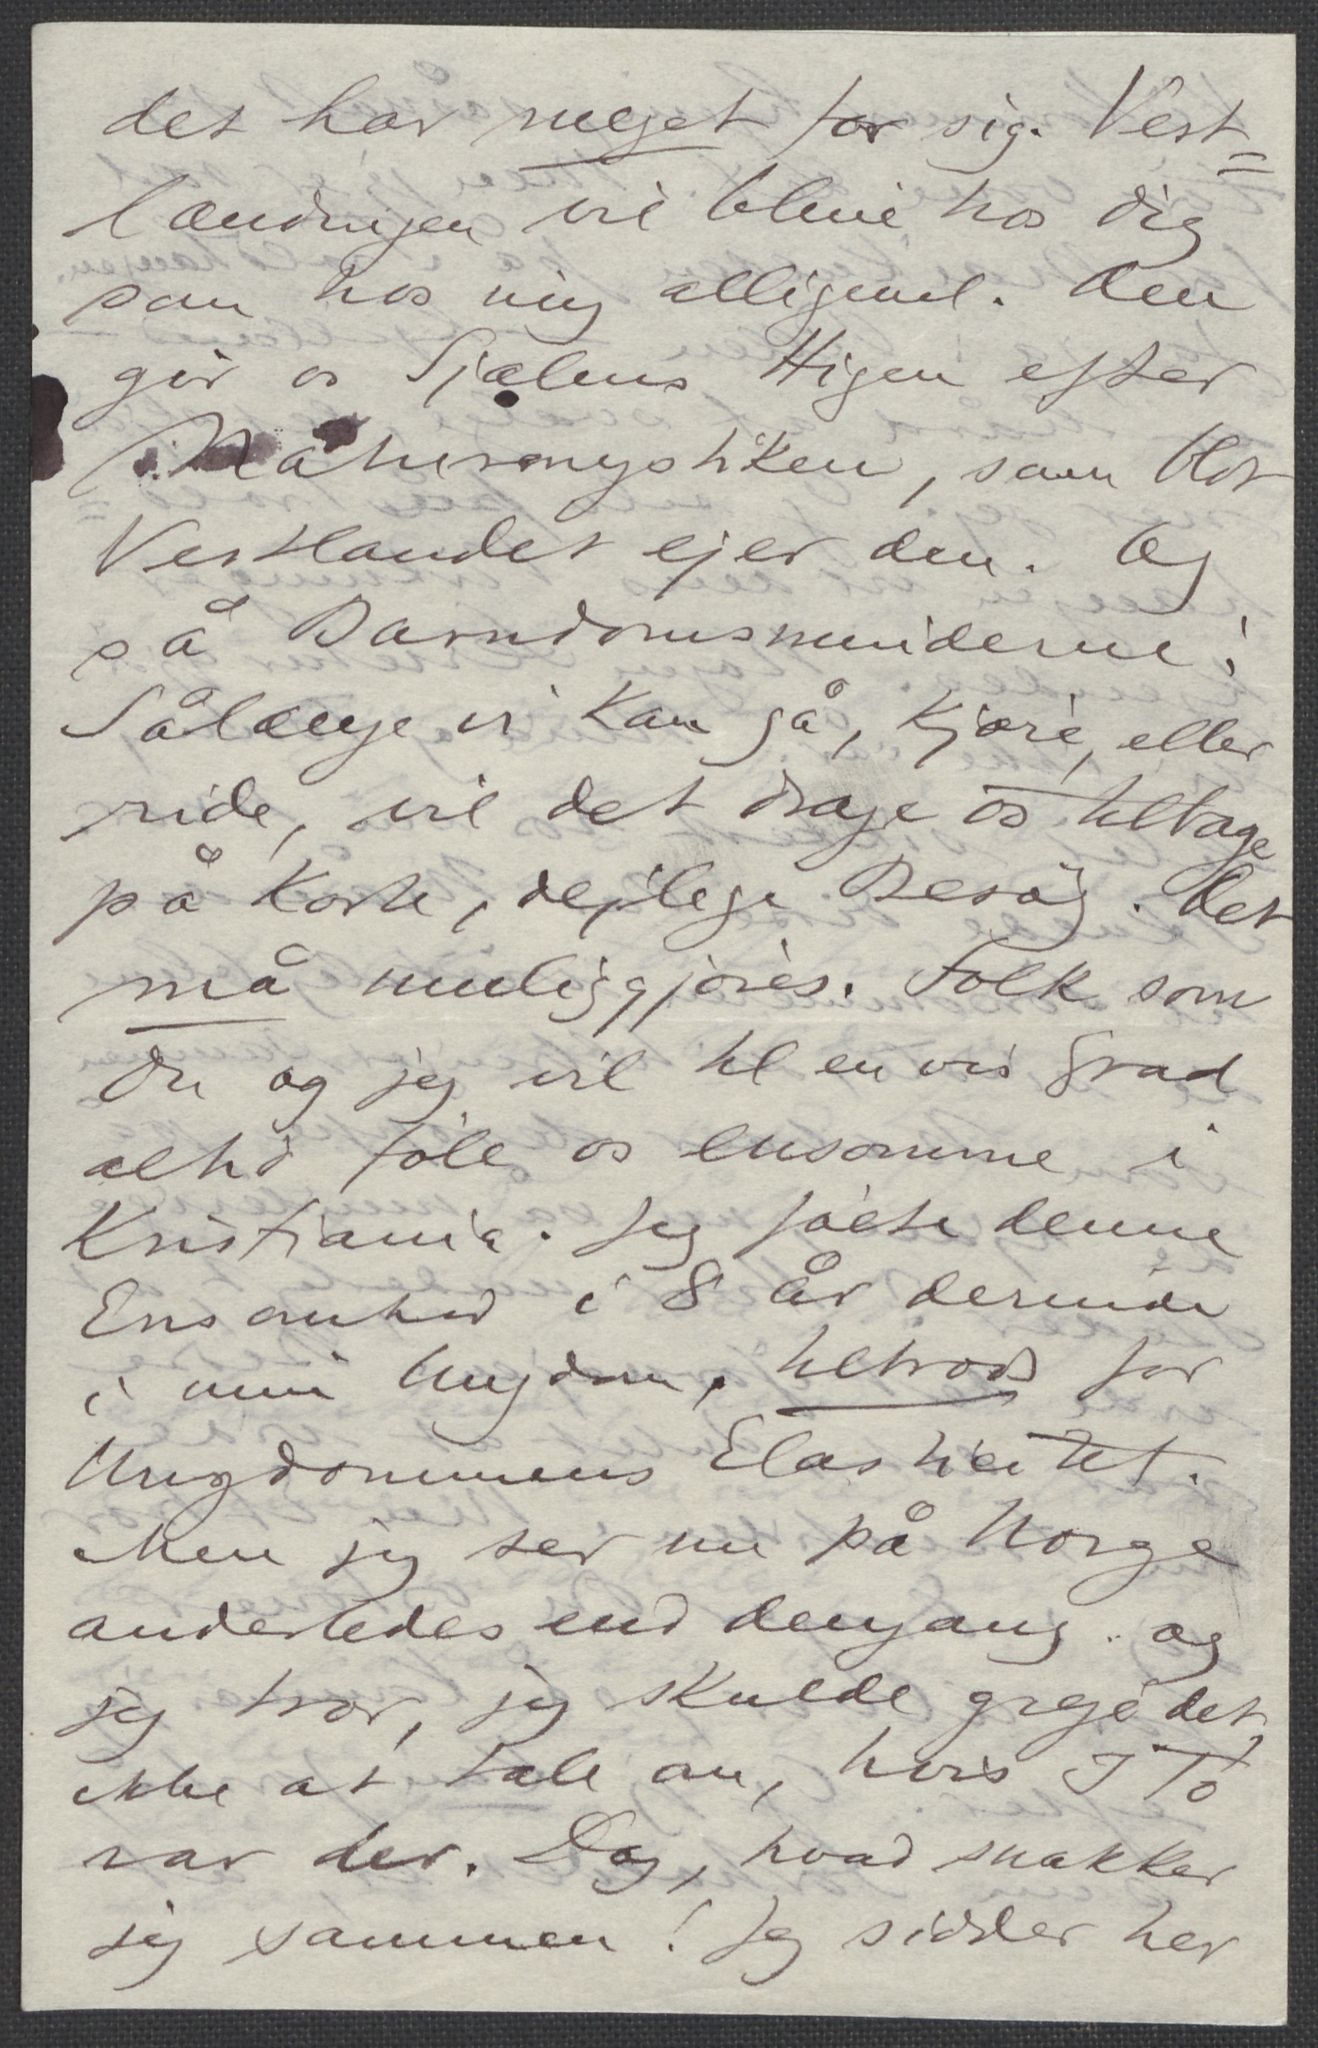 det har meget for sig. Vest=
lændingen vil blive hos dig
som hos mig alligevel. Den
gir os Sjælens Higen efter
Naturmystiken, som blot
Vestlandet ejer den. Og
så Barndomsminderne!
Sålænge vi kan gå, kjøre, eller
ride, vil det drage os tilbage
på korte, dejlige Besøg. Det
må muliggjøres. Folk som
Du og jeg vil til en vis Grad
altid føle os ensomme i
Kristiania. Jeg følte denne
Ensomhed i 8 År derinde
i min Ungdom, tiltrods for
Ungdommens Elasticitet.
Men jeg ser nu på Norge
anderledes end dengang og
jeg tror, jeg skulde greje det,
ikke at tale om, hvis I To
var der. Dog, hvad snakker
jeg sammen! Jeg sidder her